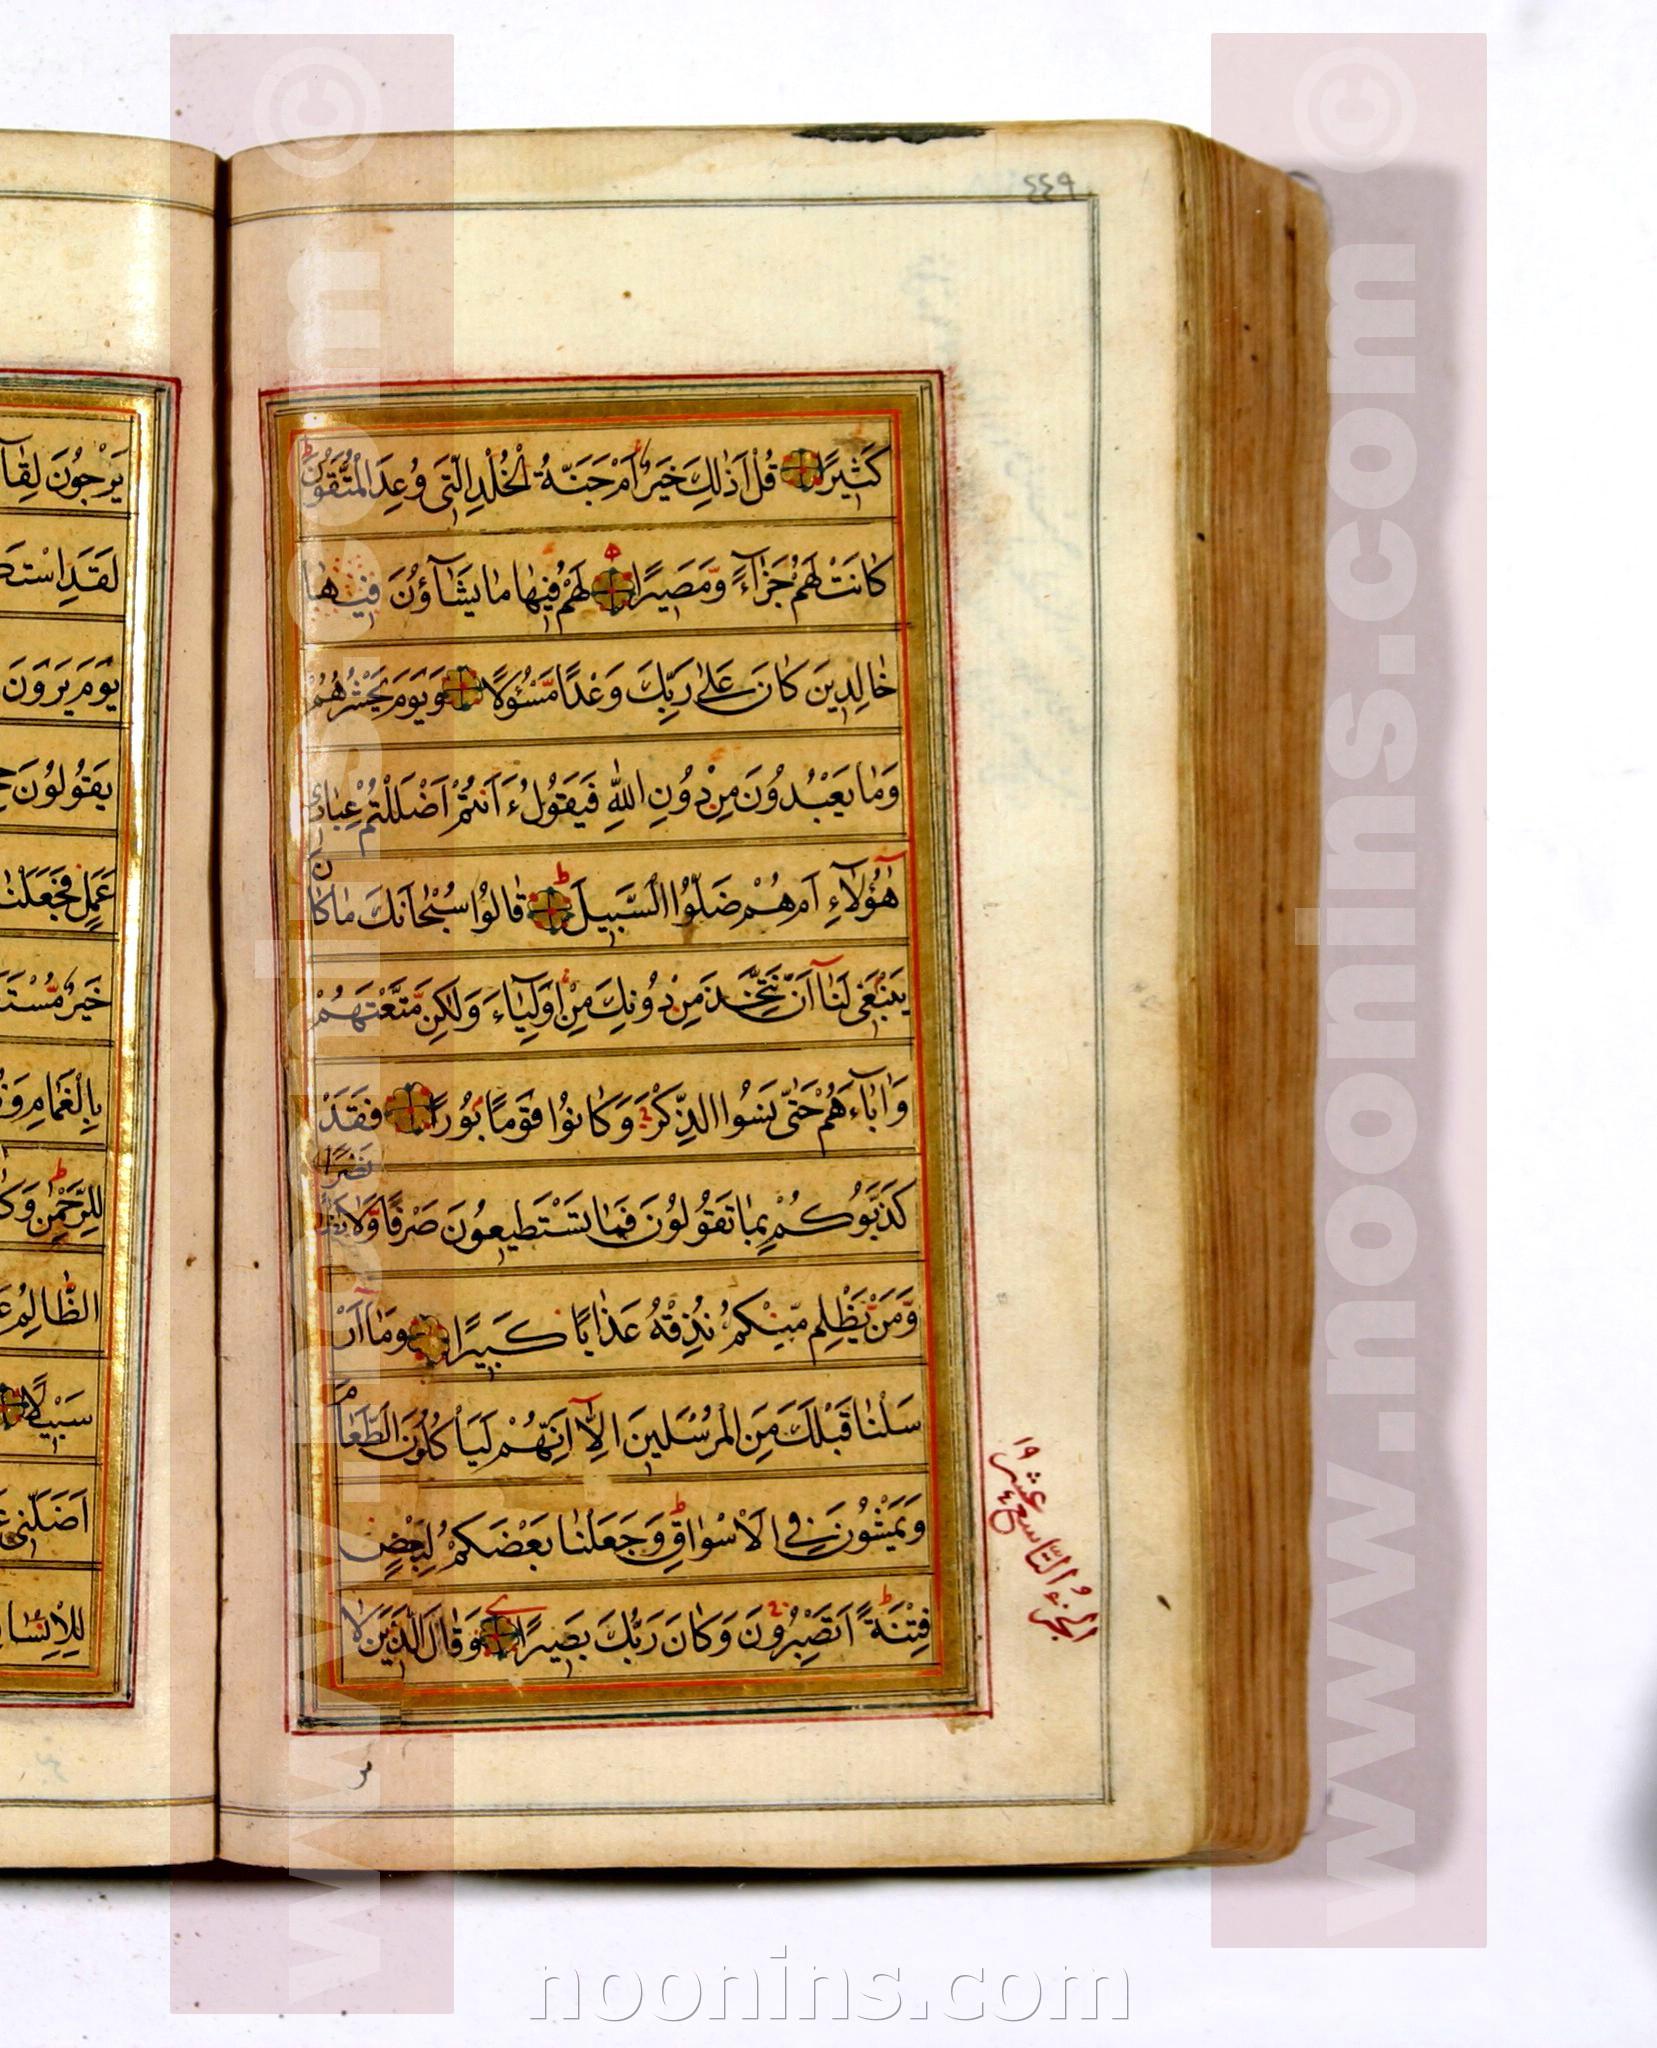 ٤٤٩
كَثِيرًا قُلْ اَذٰلِكَ خَيْرٌ اَمْ جَنَّةُ الْخُلْدِ الَّتِى وُعِدَ الْمُتَّقُونَ
كَانَتْ لَهُمْ جَزَآءً وَّمَصِيرًا لَهُمْ فِيهٰا مٰا يَشَآؤُنَ فِيهٰا
خٰالِدِينَ كَانَ عَلٰى رَبِّكَ وَعْدًا مَّسْؤُلًا وَيَوْمَ يَحْشُرُهُمْ
وَمٰا يَعْبُدُونَ مِنْ دُونِ اللّٰهِ فَيَقُولُ ءَاَنْتُمْ اَضْلَلْتُمْ عِبٰادِى
هٰٓؤُلَآءِ اَمْ هُمْ ضَلُّوا السَّبِيلَ قٰالُوا سُبْحٰانَكَ مٰا كٰانَ
يَنْبَغِى لَنٰآ اَنْ نَتَّخِذَ مِنْ دُونِكَ مِنْ اَوْلِيٰآءَ وَلٰكِنْ مَّتَّعْتَهُمْ
وَاٰبٰآءَهُمْ حَتّٰى نَسُوا الذِّكْرَ وَكَانُوا قَوْمًا بُورًا فَقَدْ
كَذَّبُوكُمْ بِمٰا تَقُولُونَ فَمٰا تَسْتَطِيعُونَ صَرْفًا وَّلٰا نَصْرًا
وَّمَنْ يَّظْلِمْ مِّنْكُمْ نُذِقْهُ عَذٰابًا كَبِيرًا وَمٰآ اَرْ
سَلْنٰا قَبْلَكَ مِنَ الْمُرْسَلِينَ اِلَّآ اِنَّهُمْ لَيَأْكُلُونَ الطَّعٰامَ
وَيَمْشُونَ فِى الْاَسْوٰاقِ وَجَعَلْنٰا بَعْضَكُمْ لِبَعْضٍ
فِتْنَةً اَتَصْبِرُونَ وَكٰانَ رَبُّكَ بَصِيرًا وَقٰالَ الَّذِينَ لٰا
الجزءُ التّاسع عشر ١٩
يَرْجُونَ لِقٰآ
لَقَدِ اسْتَك
يَوْمَ يَرَوْنَ
يَقُولُونَ
عَمَلٍ فَجَعَلْنٰا
خَيْرٌ مُّسْتَ
بِالْغَمٰامِ
لِلرَّحْمٰنِ وَك
الظّٰالِمُ
سَبِيلًا
اَضَلَّنِى
لِلْاِنْسٰا
www.noonins.com ©
www.noonins.com ©
noonins.com